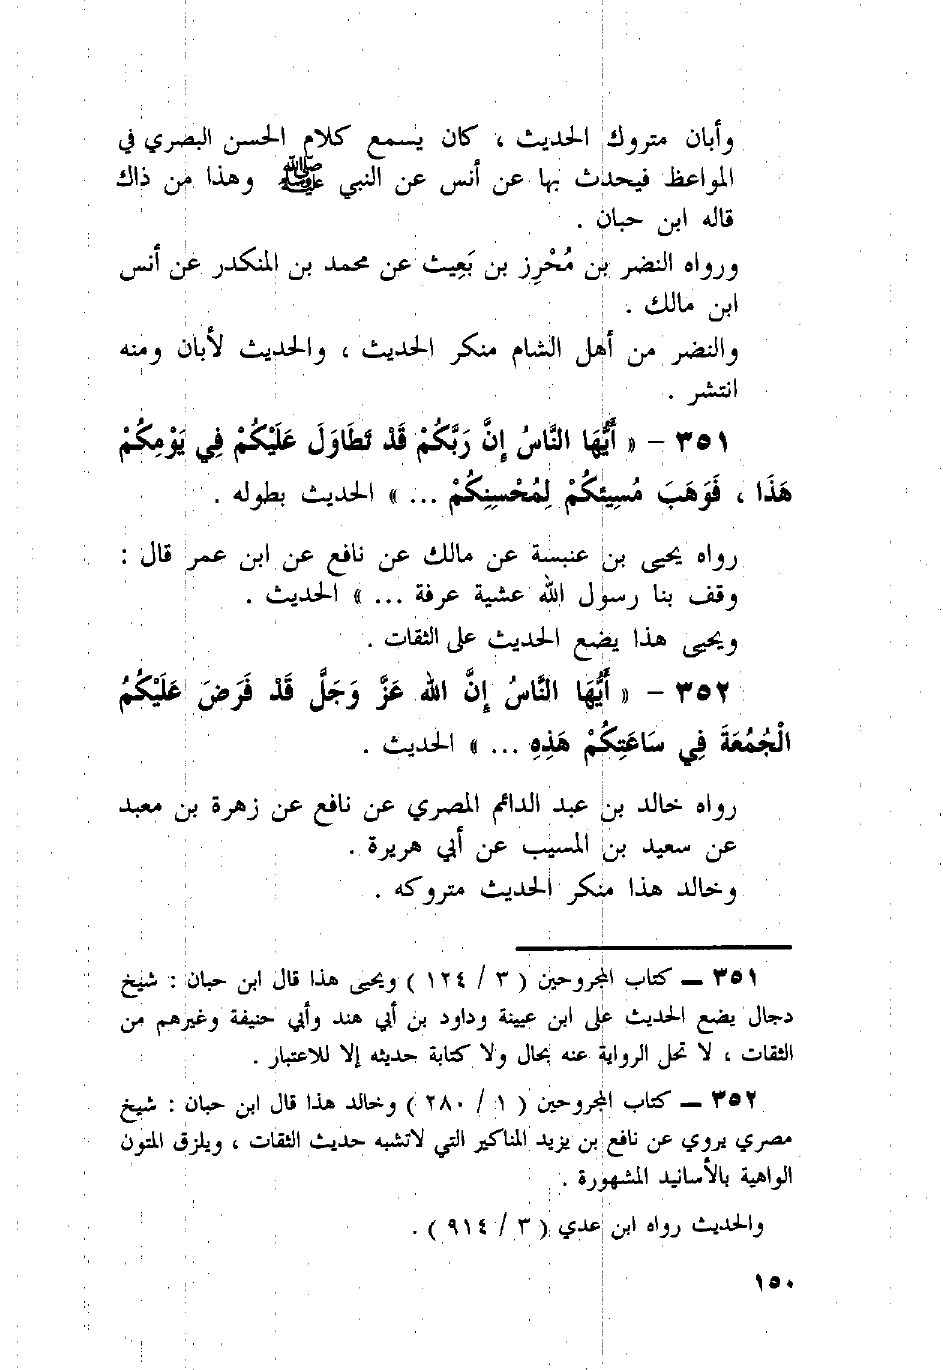 وأبان متروك الحديث ، كان يسمع كلام الحسن البصري في
المواعظ فيحدث بها عن أنس عن النبي ﷺ وهذا من ذاك
قاله ابن حبان .
ورواه النضر بن مُحْرِز بن بَعِيث عن محمد بن المنكدر عن أنس
ابن مالك .
والنضر من أهل الشام منكر الحديث ، والحديث لأبان ومنه
انتشر .
٣٥١ – « أَيُّهَا النَّاسُ إِنَّ رَبَّكُمْ قَدْ تَطَاوَلَ عَلَيْكُمْ فِي يَوْمِكُمْ
هَذَا ، فَوَهَبَ مُسِيئَكُمْ لِمُحْسِنِكُمْ ... » الحديث بطوله .
رواه يحيى بن عنبسة عن مالك عن نافع عن ابن عمر قال :
وقف بنا رسول الله عشية عرفة ... » الحديث .
ويحيى هذا يضع الحديث على الثقات .
٣٥٢ – « أَيُّهَا النَّاسُ إِنَّ الله عَزَّ وَجَلَّ قَدْ فَرَضَ عَلَيْكُمُ
الْجُمُعَةَ فِي سَاعَتِكُمْ هَذِهِ ... » الحديث .
رواه خالد بن عبد الدائم المصري عن نافع عن زهرة بن معبد
عن سعيد بن المسيب عن أبي هريرة .
وخالد هذا منكر الحديث متروكه .
٣٥١ – كتاب المجروحين ( ٣ / ١٢٤ ) ويحيى هذا قال ابن حبان : شيخ
دجال يضع الحديث على ابن عيينة وداود بن أبي هند وأبي حنيفة وغيرهم من
الثقات ، لا تحل الرواية عنه بحال ولا كتابة حديثه إلا للاعتبار .
٣٥٢ – كتاب المجروحين ( ١ / ٢٨٠ ) وخالد هذا قال ابن حبان : شيخ
مصري يروي عن نافع بن يزيد المناكير التي لاتشبه حديث الثقات ، ويلزق المتون
الواهية بالأسانيد المشهورة .
والحديث رواه ابن عدي ( ٣ / ٩١٤ ) .
١٥٠